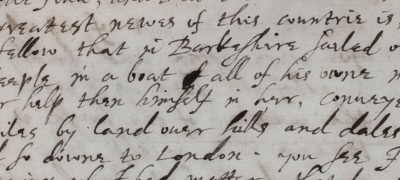 greatest newes of this countrie is
fellow that in Barkeshire sailed o
eeple in a boat of all of his owne m
r help then himself in her, conveye
iles by land over hills and dales
t so downe to London. you see I